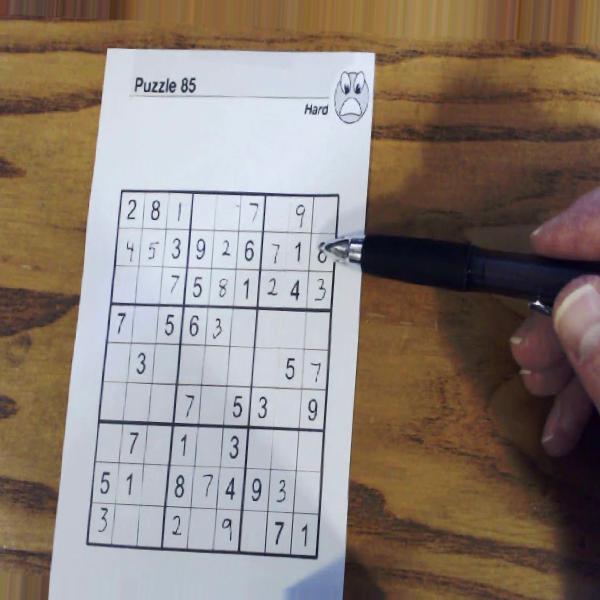 Puzzle 85
Hard
2 8 1 7 9
4 5 3 9 2 6 7 1 8
7 5 8 1 2 4 3
7 5 6 3
3 5 7
7 5 3 9
7 1 3
5 1 8 7 4 9 3
3 2 9 7 1